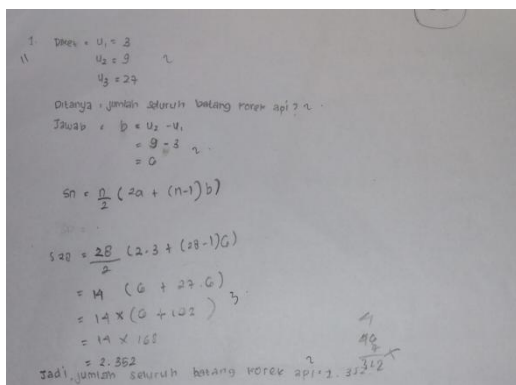 1. Diket = U1 = 3
11 U2 = 9 2
U3 = 27
Ditanya = jumlah seluruh batang korek api ? 2
Jawab = b = U2 - U1
= 9 - 3 2
= 6
Sn = n/2 (2a + (n-1) b)
S28 = 28/2 (2.3 + (28-1)6)
= 14 (6 + 27.6)
= 14 x (6 + 162) 3
= 14 x 168
= 2.352
Jadi, jumlah seluruh batang korek api = 2.352